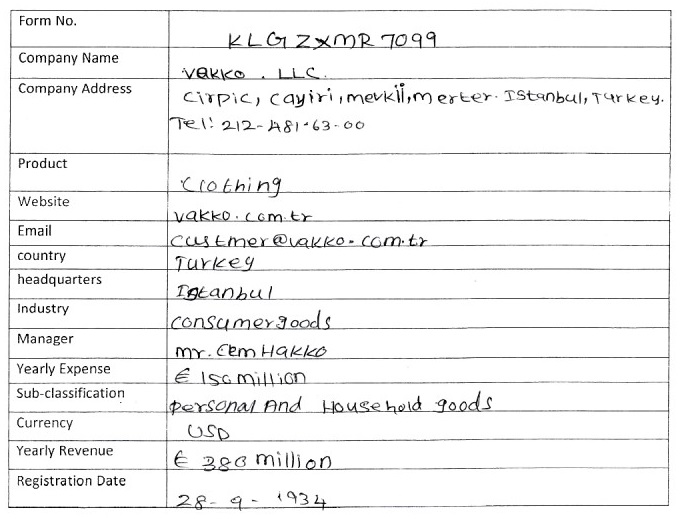 Form No.
KLGZXMR7099
Company Name
Vakko . LLC.
Company Address
Cirpic, Cayiri, mevkii, merter. Istanbul, Turkey.
Tel: 212-481-63-00
Product
Clothing
Website
vakko.com.tr
Email
custmer@vakko.com.tr
country
Turkey
headquarters
Istanbul
Industry
consumer goods
Manager
mr. Cem Hakko
Yearly Expense
€ 150 million
Sub-classification
personal And Household goods
Currency
USD
Yearly Revenue
€ 380 million
Registration Date
28- 9- 1934